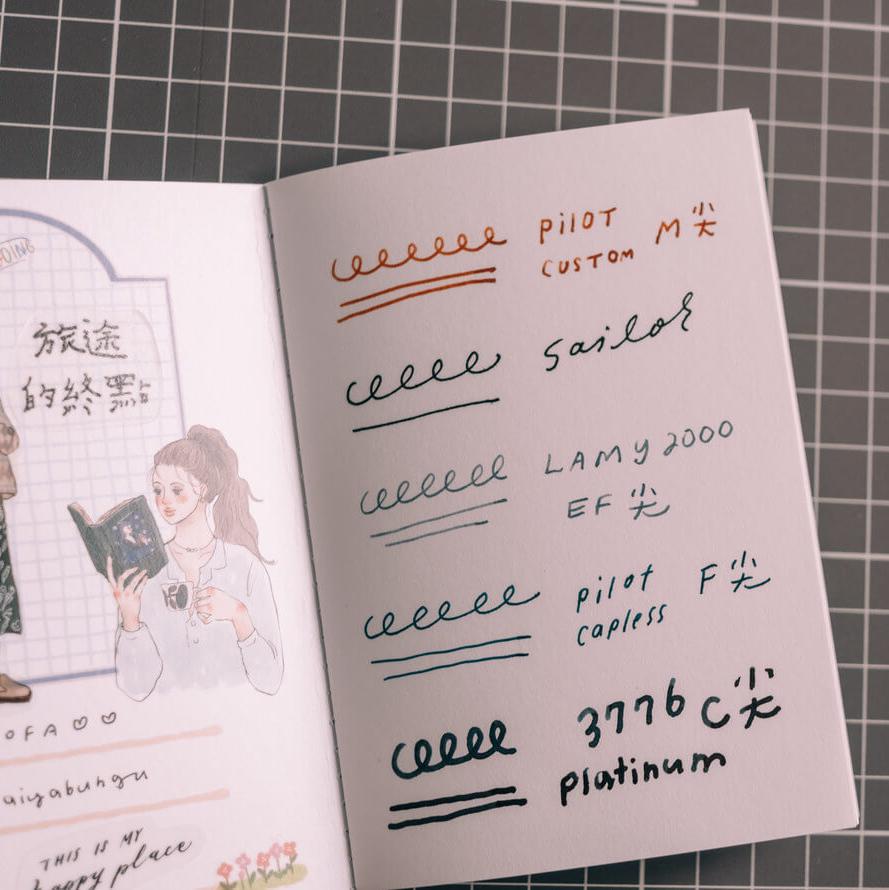 旅途
的終點
OFA ♡♡
aiyabungu
THIS IS MY
happy place
PILOT
CUSTOM M尖
Sailor
LAMY 2000
EF 尖
pilot F尖
capless
3776 C尖
platinum